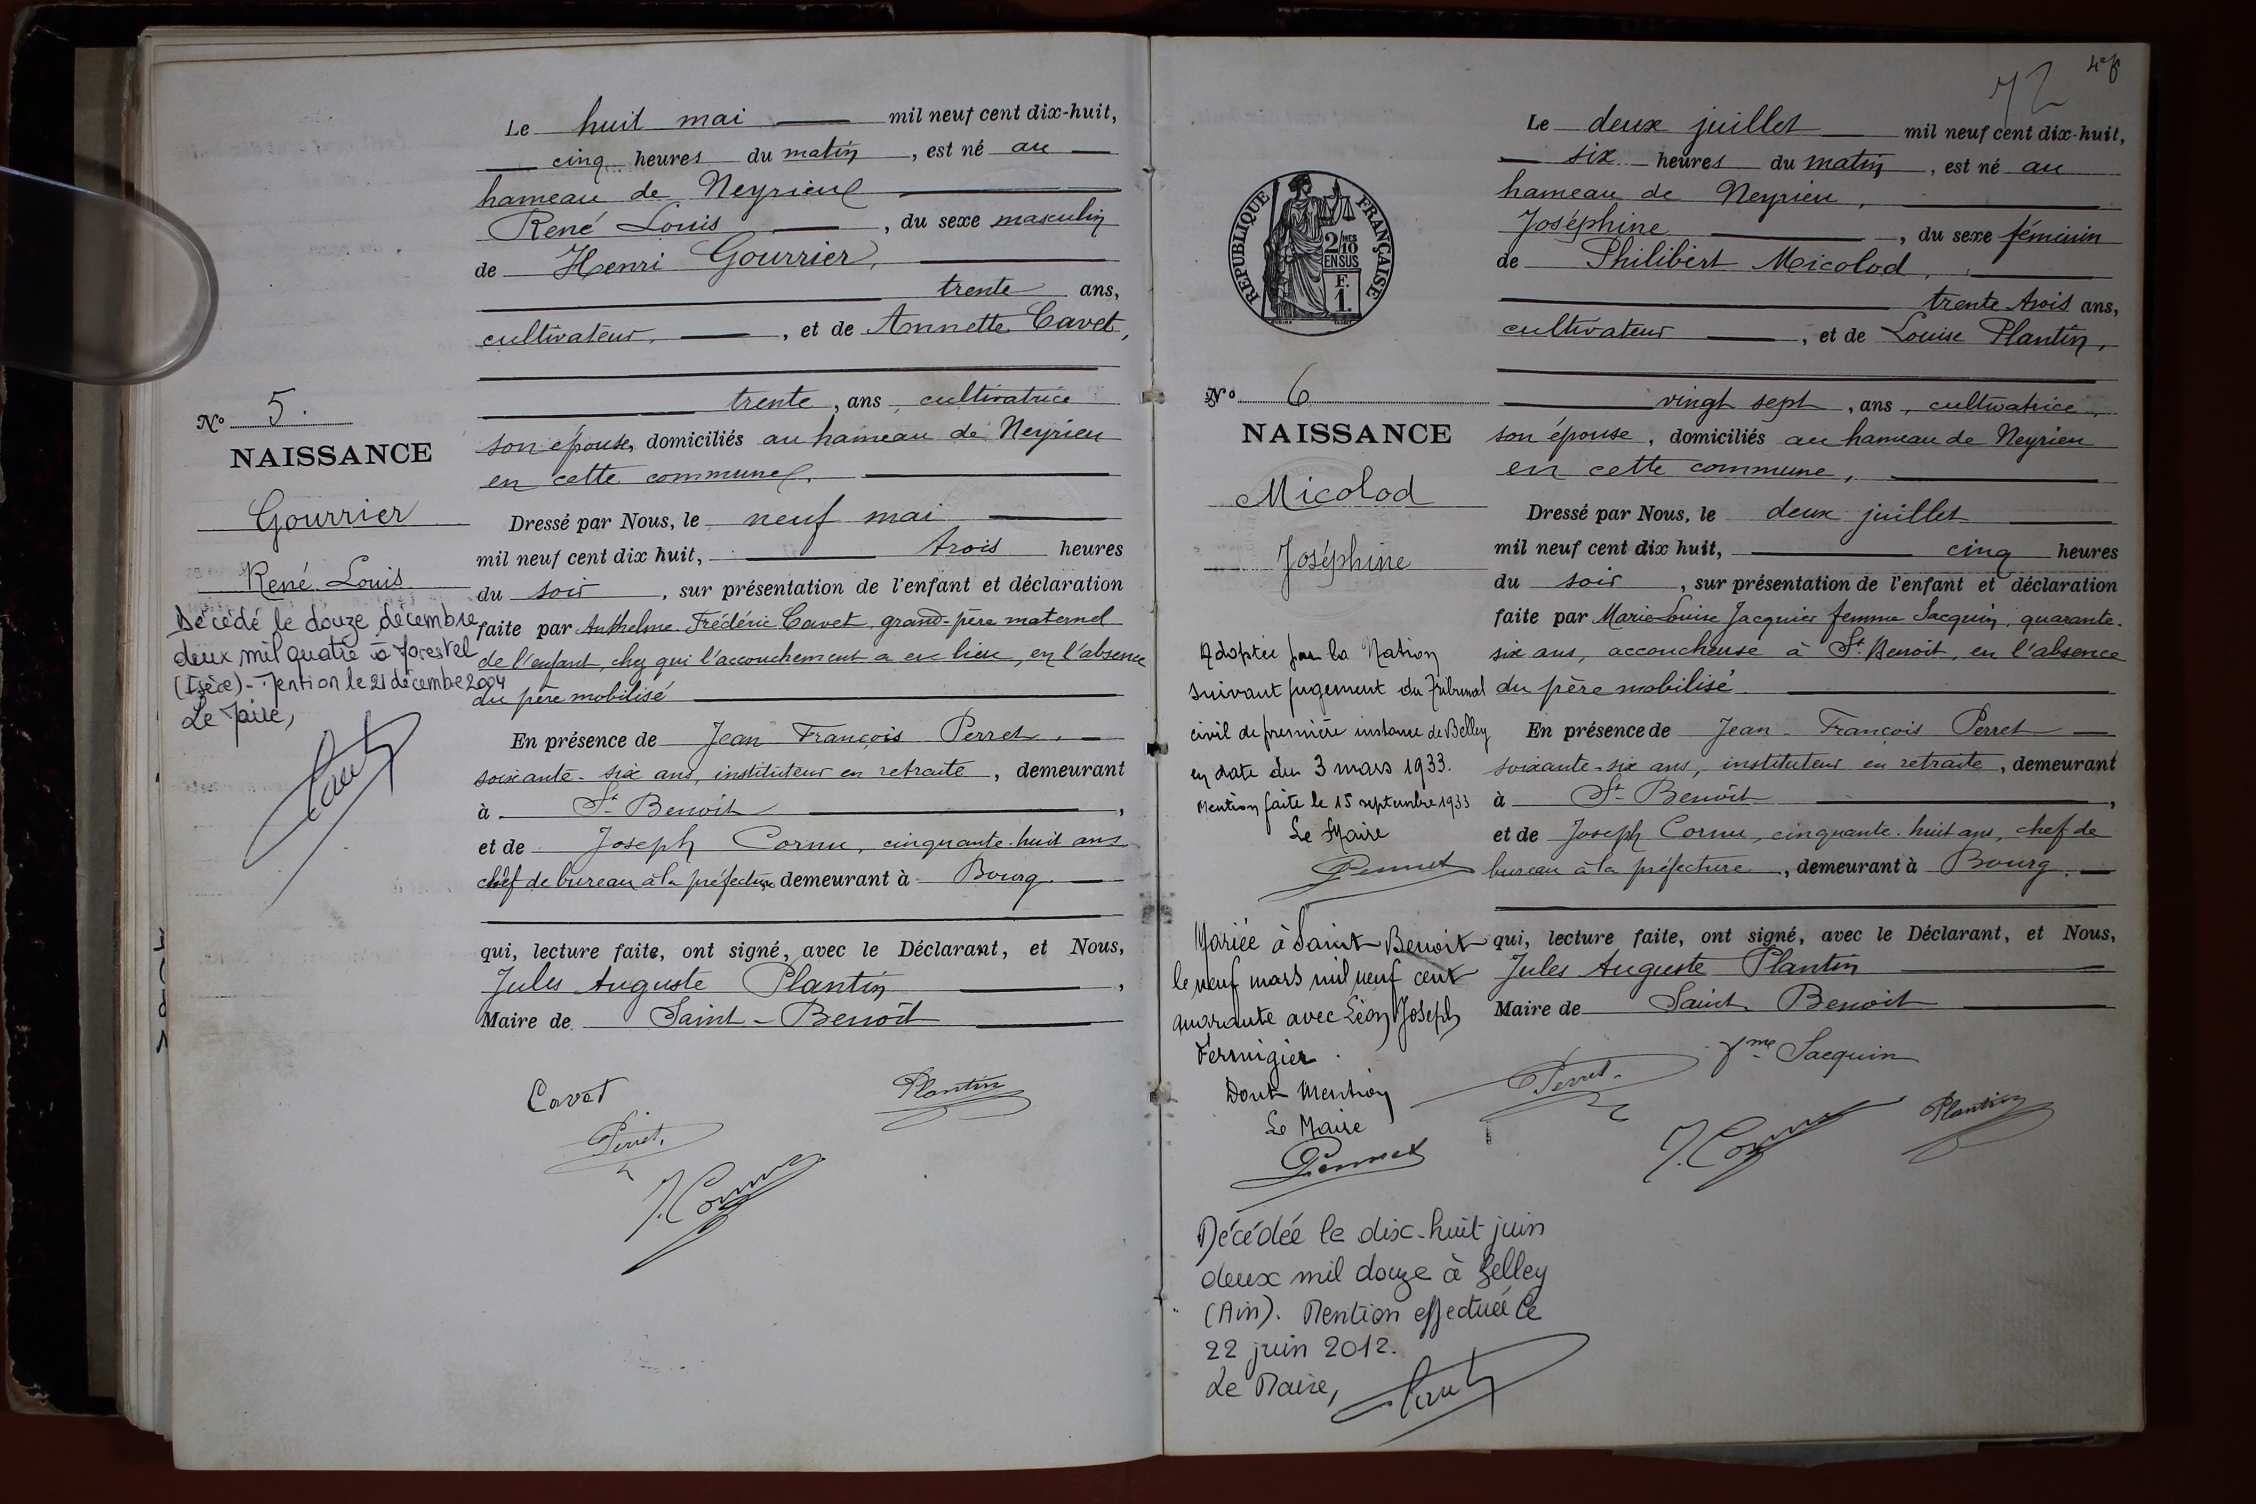 Le huit mai mil neuf cent dix-huit,
cinq heures du matin, est né au
hameau de Neyrieu
René Louis, du sexe masculin
de Henri Gourrier,
trente ans,
cultivateur, et de Annette Cavet,
trente, ans, cultivatrice
son épouse, domiciliés au hameau de Neyrieu
en cette commune.
Dressé par Nous, le neuf mai
mil neuf cent dix huit, trois heures
du soir, sur présentation de l'enfant et déclaration
faite par Anthelme Frédéric Cavet grand-père maternel
de l'enfant, chez qui l'accouchement a eu lieu, en l'absence
du père mobilisé
En présence de Jean François Perret,
soixante-six ans, instituteur en retraite, demeurant
à St Benoit,
et de Joseph Cornu, cinquante-huit ans
chef de bureau à la préfecture demeurant à Bourg
qui, lecture faite, ont signé, avec le Déclarant, et Nous,
Jules Auguste Plantin,
Maire de Saint-Benoît
Cavet
Plantin
Perret
J. Cornu
No 5.
NAISSANCE
Gourrier
René Louis
Décédé le douze décembre
deux mil quatre à Morestel
(Isère) - Mention le 21 décembre 2004
Le Maire,
72
Le deux juillet mil neuf cent dix-huit,
six heures du matin, est né au
hameau de Neyrieu,
Joséphine, du sexe féminin
de Philibert Micolod,
trente trois ans,
cultivateur, et de Louise Plantin,
vingt sept, ans, cultivatrice,
son épouse, domiciliés au hameau de Neyrieu
en cette commune,
Dressé par Nous, le deux juillet
mil neuf cent dix huit, cinq heures
du soir, sur présentation de l'enfant et déclaration
faite par Marie Louise Jacquier femme Sacquin, quarante-
six ans, accoucheuse à St Benoit, en l'absence
du père mobilisé.
En présence de Jean-François Perret
soixante-six ans, instituteur en retraite, demeurant
à St-Benoît,
et de Joseph Cornu, cinquante-huit ans, chef de
bureau à la préfecture, demeurant à Bourg.
qui, lecture faite, ont signé, avec le Déclarant, et Nous,
Jules Auguste Plantin
Maire de Saint Benoit
fme Sacquin
Perret
J. Cornu
Plantin
REPUBLIQUE FRANÇAISE
2/10 MES
EN SUS
F.
1.
No 6
NAISSANCE
Micolod
Joséphine
Adoptée par la Nation
suivant jugement du Tribunal
civil de première instance de Belley
en date du 3 mars 1933.
Mention faite le 15 septembre 1933
Le Maire
Mariée à Saint Benoit
le neuf mars mil neuf cent
quarante avec Léon Joseph
Vermigier.
Dont Mention
Le Maire
Décédée le dix-huit juin
deux mil douze à Belley
(Ain). Mention effectuée le
22 juin 2012.
Le Maire,